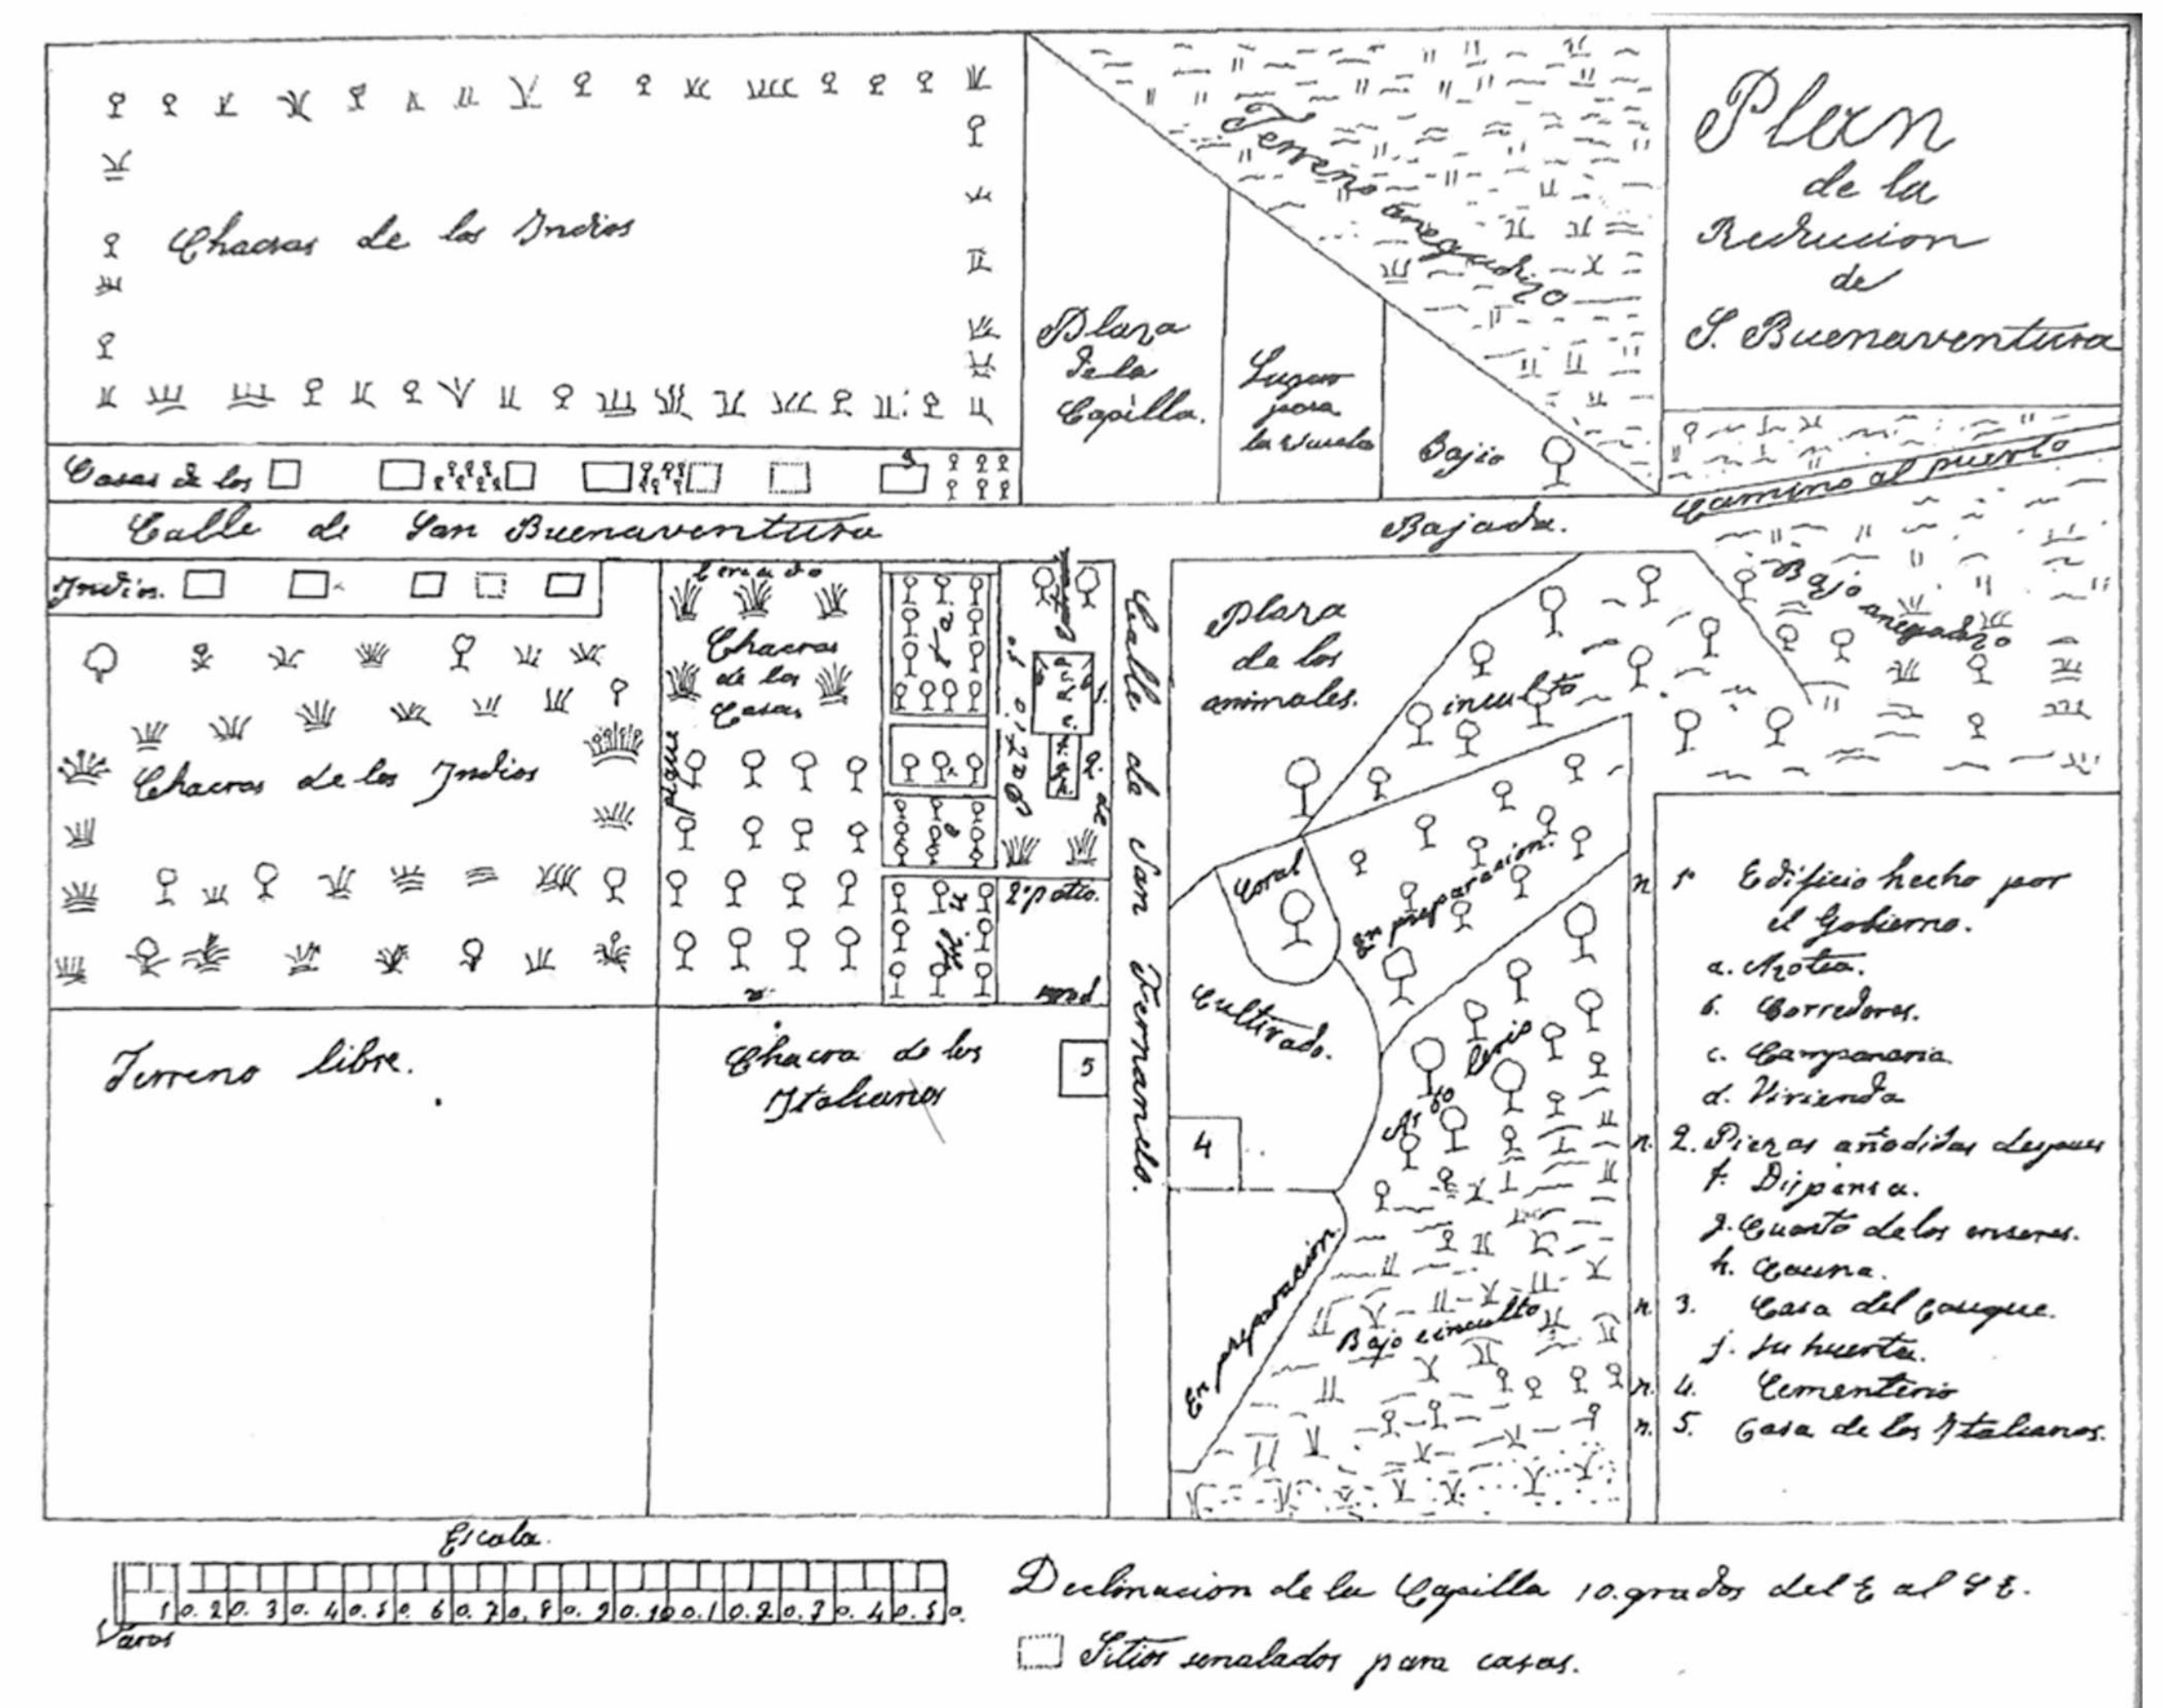 Plan
de la
Reducion
de
S. Buenaventura
Chacras de los Indios
Terreno anegadizo
Plaza
de la
Capilla.
Lugar
para
la escuela
Bajio
Camino al puerto
Casas de los
Calle de San Buenaventura
Bajada.
Indios.
cercado
Chacras
de las
Casas
pique
Calle de San Fernando.
Plaza
de los
animales.
inculto
Bajo anegadizo
Chacras de los Indios
2º patio.
Coral
En preparacion.
Cultivado.
Terreno libre.
Chacra de los
Italianos
5
4
En preparación.
Bajo e inculto
n 1º Edificio hecho por
el Gobierno.
a. Azotea.
b. Corredores.
c. Campanaria
d. Vivienda
n. 2. Piezas añadidas despues
f. Dispensa.
g. Cuarto de los enseres.
h. Cocina.
n 3. Casa del Cacique.
j. su huerta.
n. 4. Cementerio
n. 5. Casa de los Italianos.
Escala.
10. 20. 30. 40. 50. 60. 70. 80. 90. 100. 10. 20. 30. 40. 50.
Varas
Declinacion de la Capilla 10. grados del E al SE.
Sitios senalados para casas.